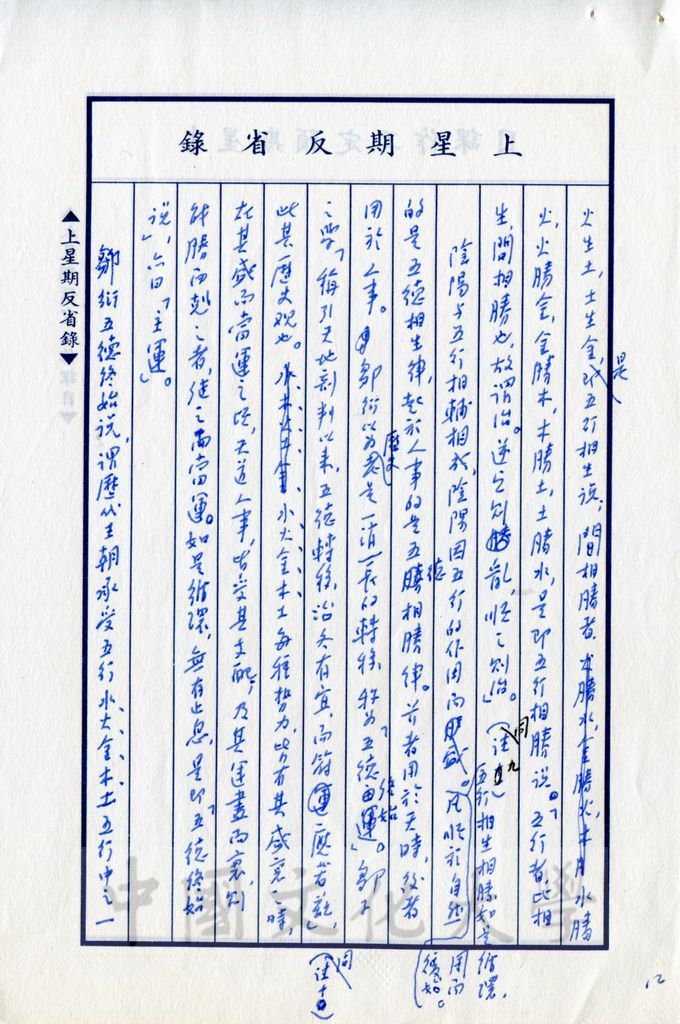 上星期反省錄
火生土,土生金,即五行相生說,間相勝者,水勝
是
火,火勝金,金勝木,木勝土,土勝水,是即五行相勝說。五行者,比相
生,間相勝也,故謂治。逆之則亂,順之則治。」(註九)
同
五行相生相勝如是循環,
陰陽与五行相輔相成,陰陽因五行的作因而盛。凡順於自然
用而
後始。
的是五德相生律,起於人事的是五德相勝律。前者用於天時,後者
用於人事。鄒衍以為歷史是一消一長的轉移,稱為「五德終始」。鄒子
之學「稱引天地剖判以來,五德轉移,治各有宜,而符應若茲」,
(同註十)
此其歷史觀也。水火金木土每種勢力,皆有其盛衰之時,
在其盛而當運之時,天道人事,皆受其支配,及其運盡而衰,則
能勝而剋之者,繼之而當運。如是循環,無有止息,是即「五德終始
說」,亦曰「主運」。
鄒衍五德終始說,謂歷代王朝承受五行水火金木土五行中之一
▲上星期反省錄▼
中國文化大學
12